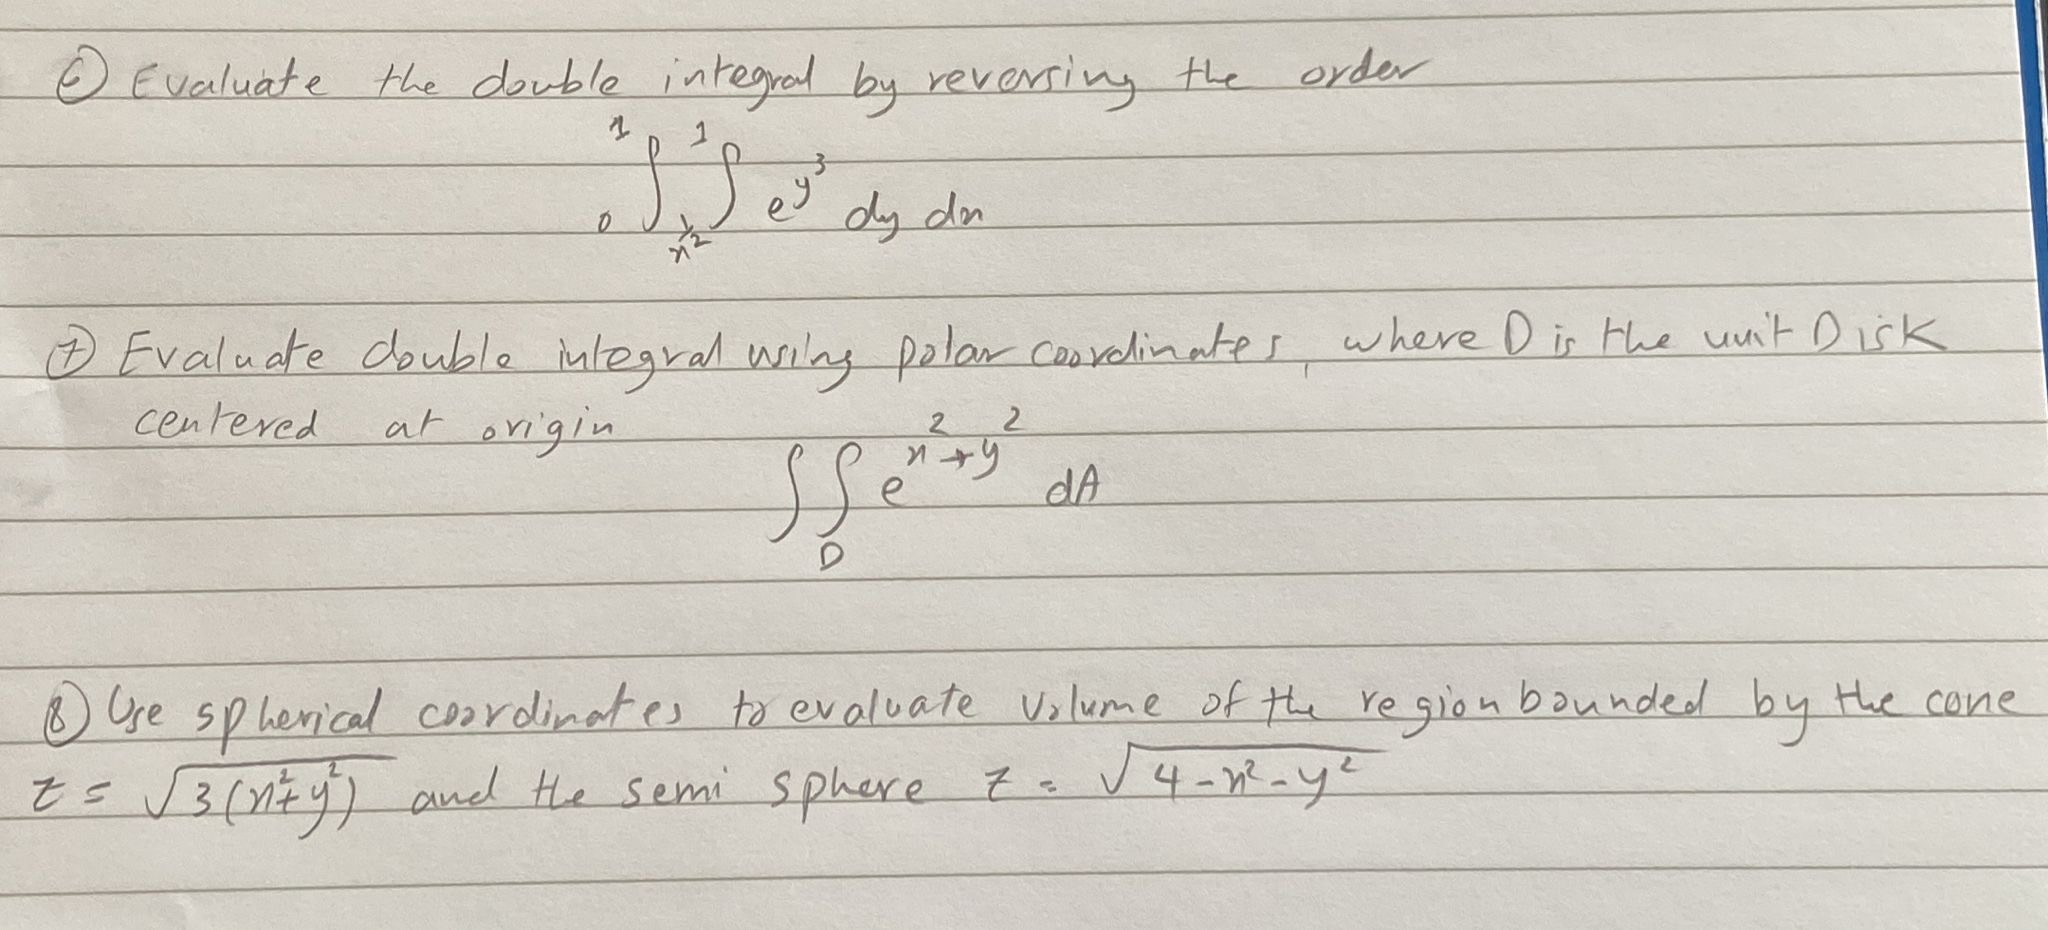 ⑥ Evaluate the double integral by reversing the order
₀∫¹ ∫¹ e^{y³} dy dx
⑦ Evaluate double integral using polar coordinates, where D is the unit Disk
centered at origin
∫∫_D e^{x²+y²} dA
⑧ Use spherical coordinates to evaluate volume of the region bounded by the cone
z = √(3(x²+y²)) and the semi sphere z = √(4-x²-y²)